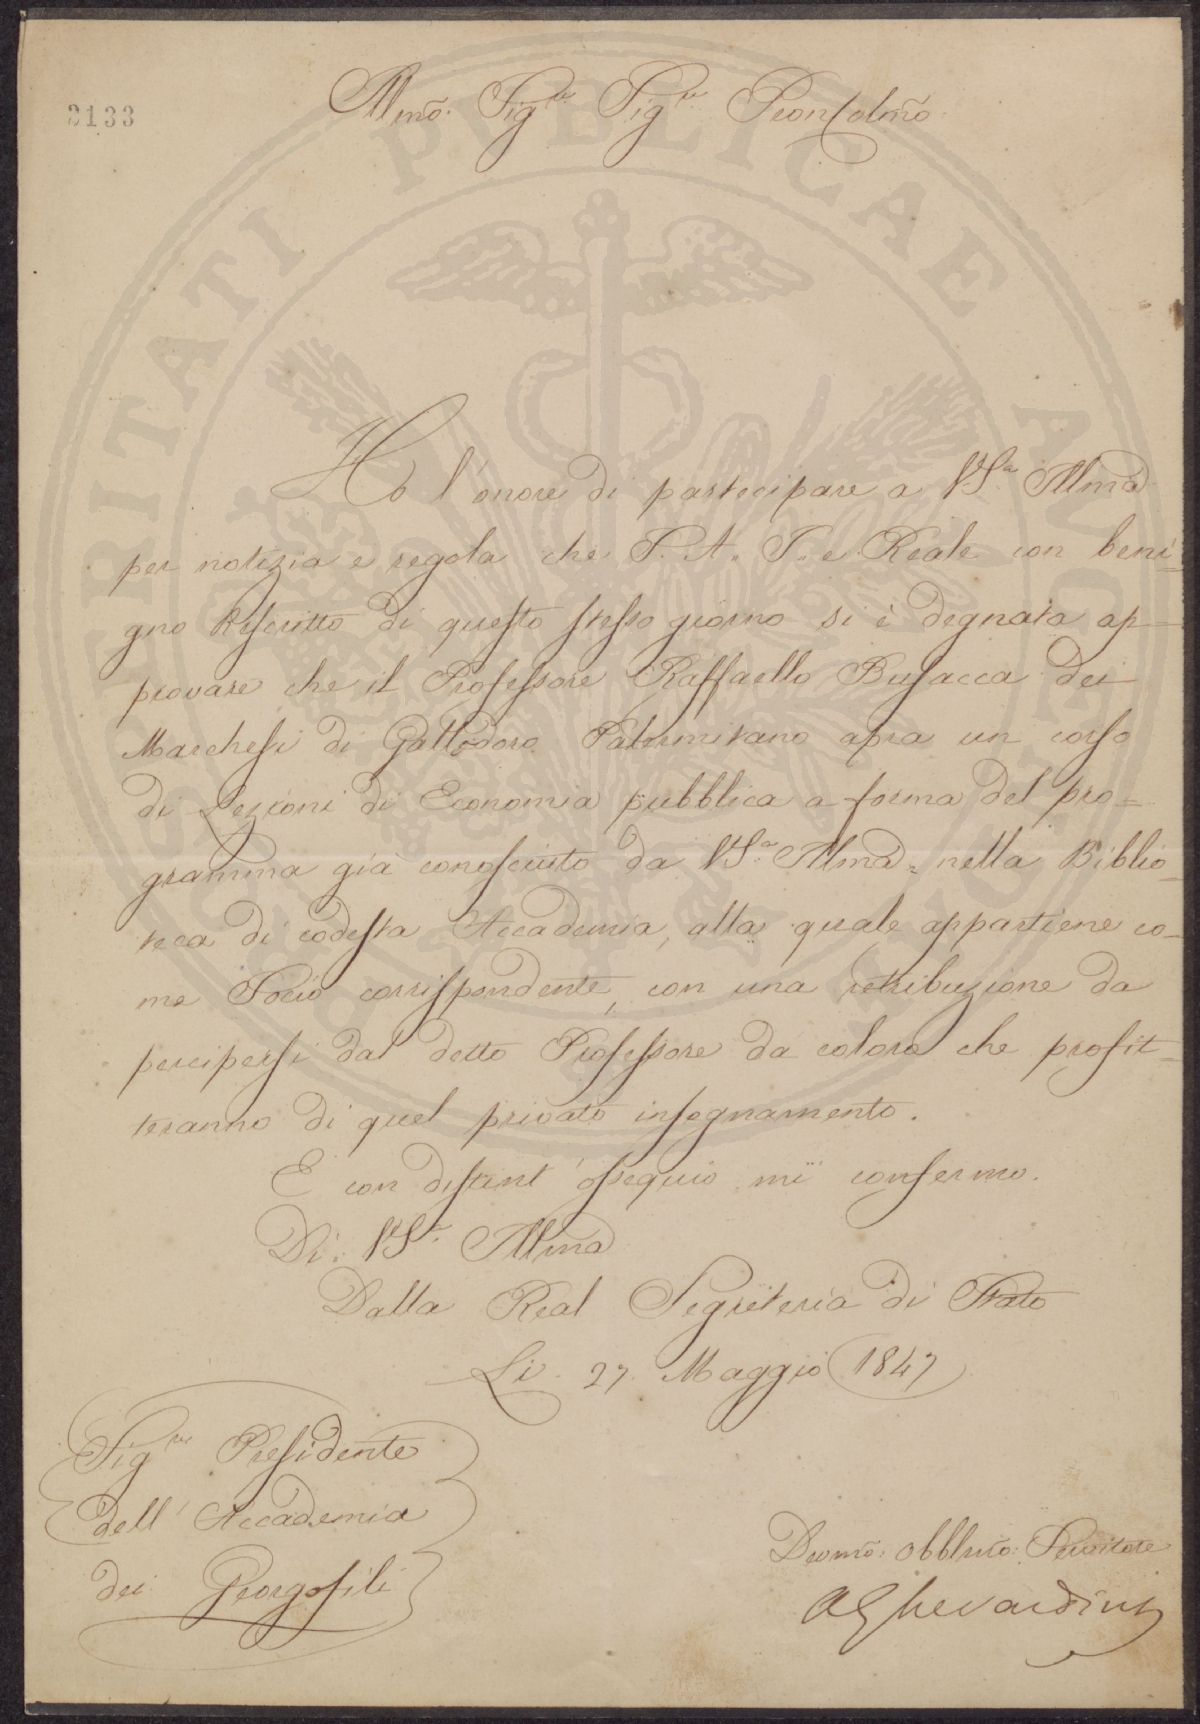 3133
Illmo. Sigre Sigre Pron Colmo.
Ho l'onore di partecipare a VSa. Illma.
per notizia e regola che S. A. I. e Reale con beni=
gno Rescritto di questo stesso giorno si è degnata ap=
provare che il Professore Raffaello Busacca dei
Marchesi di Gallodoro Palermitano apra un corso
di Lezioni di Economia pubblica a forma del pro=
gramma già conosciuto da VSa. Illma. nella Biblio=
teca di codesta Accademia, alla quale appartiene co=
me Socio corrispondente, con una retribuzione da
percipersi dal detto Professore da coloro che profit=
teranno di quel privato insegnamento.
E con distint'ossequio mi confermo.
Di VSa. Illma
Dalla Real Segreteria di Stato
Li 27. Maggio 1847
Sigre Presidente
dell'Accademia
dei Georgofili
Devmo: Obblmo: Servitore
A Gherardini
PROSPERITATI PUBLICAE AUGENDAE